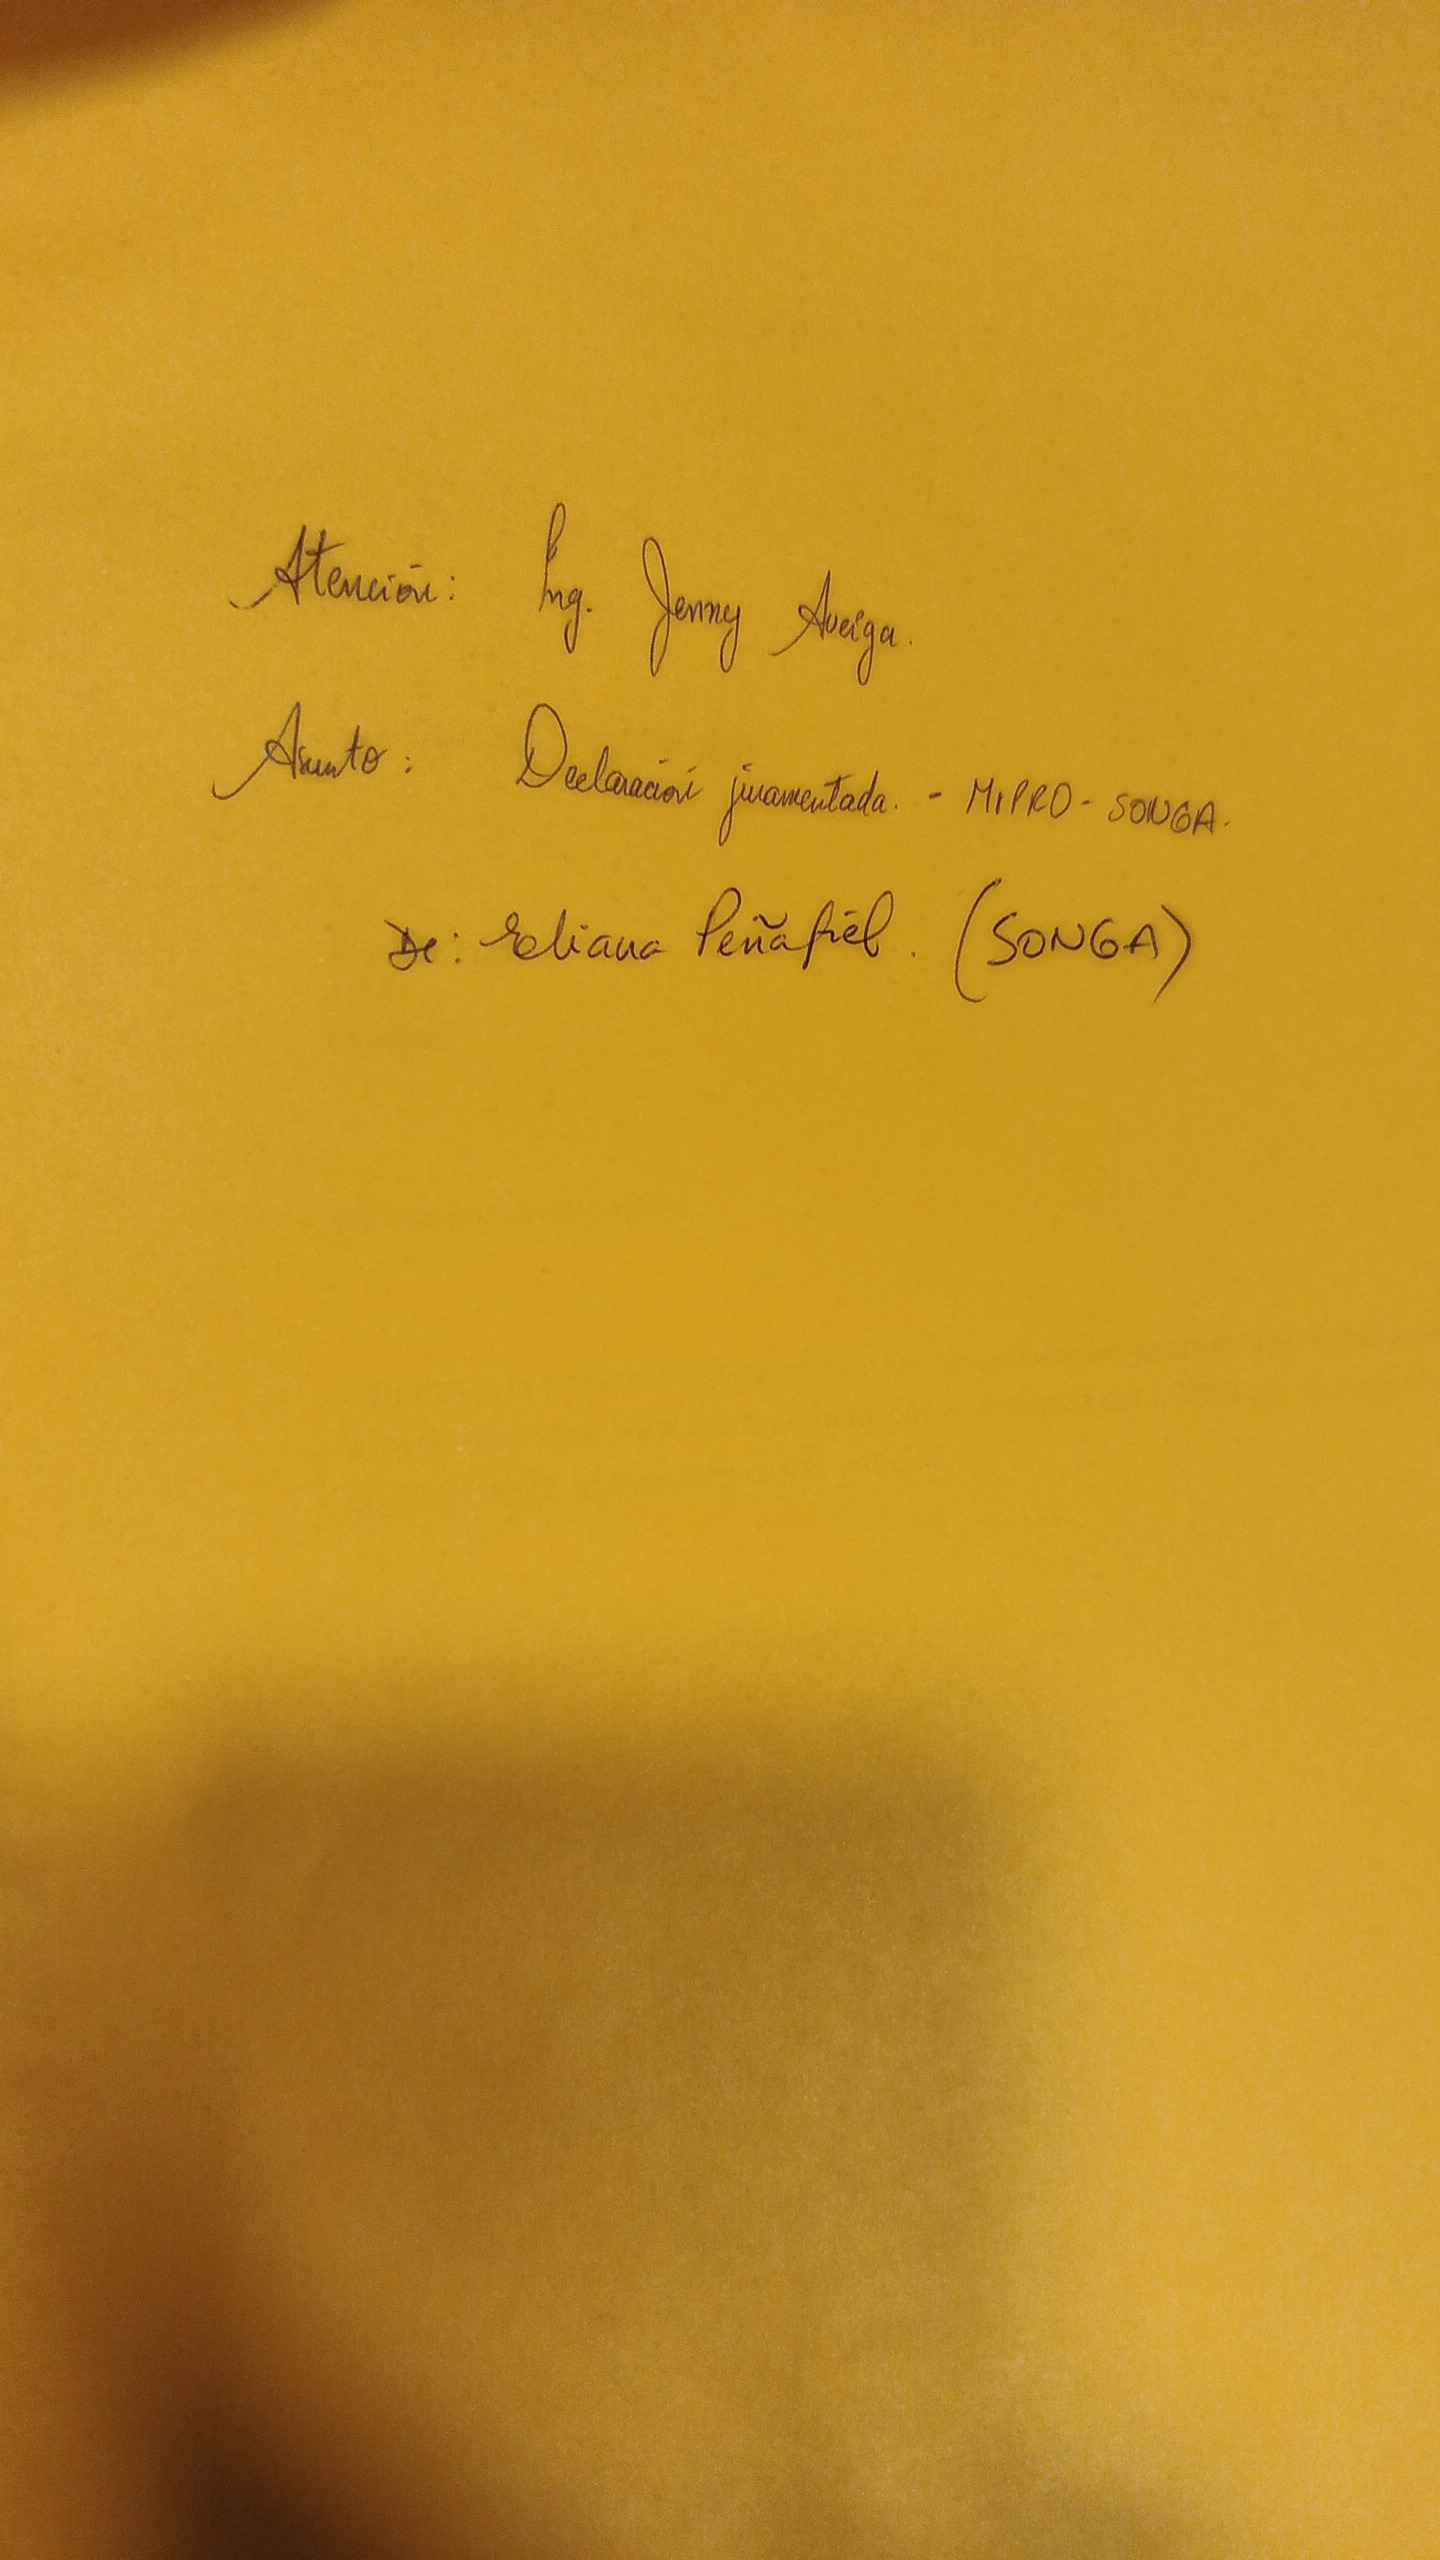 Atención: Ing. Jenny Aveiga.
Asunto: Declaración juramentada. - MIPRO - SONGA.
De: Eliana Peñafiel. (SONGA)